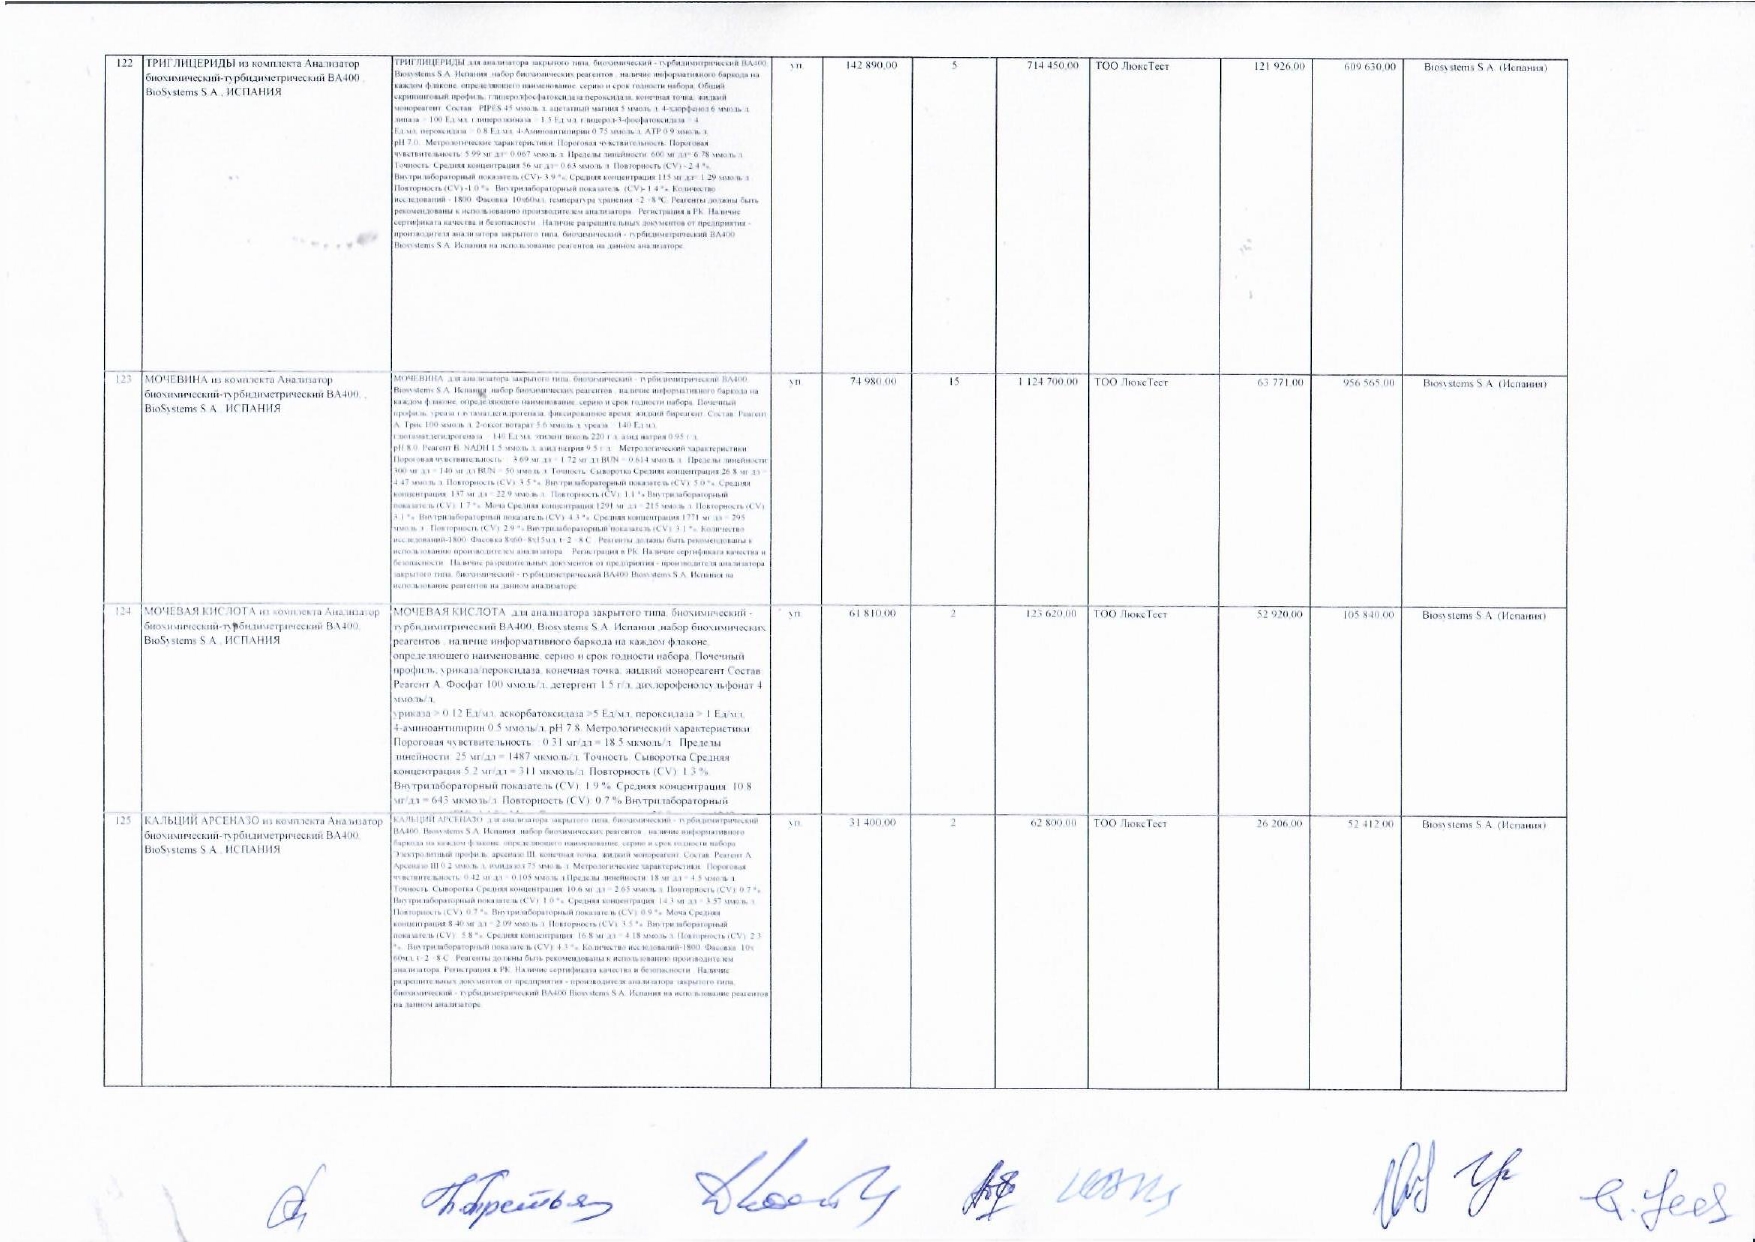 122
ТРИГЛИЦЕРИДЫ из комплекта Анализатор
биохимический-турбидиметрический ВА400. ,
BioSystems S.A., ИСПАНИЯ
ТРИГЛИЦЕРИДЫ для анализатора закрытого типа, биохимический - турбидиметрический ВА400,
Biosystems S.A. Испания ,набор биохимических реагентов , наличие информативного баркода на
каждом флаконе, определяющего наименование, серию и срок годности набора. Общий
скрининговый профиль, глицеролфосфатоксидаза/пероксидаза, конечная точка, жидкий
монореагент. Состав: PIPES 45 ммоль/л, ацетатный магния 5 ммоль/л, 4-хлорфенол 6 ммоль/л,
Ед/мл, пероксидаза > 0.8 Ед/мл, 4-Аминоантипирин 0.75 ммоль/л, АТР 0.9 ммоль/л,
pH 7.0. Метрологические характеристики: Пороговая чувствительность: Пороговая
чувствительность: 5.99 мг/дл= 0.067 ммоль/л. Пределы линейности: 600 мг/дл= 6.78 ммоль/л.
Точность: Средняя концентрация 56 мг/дл= 0.63 ммоль/л. Повторность (CV)- 2.4 %,
Внутрилабораторный показатель (CV)- 3.9 %. Средняя концентрация 115 мг/дл= 1.29 ммоль/л.
Повторность (CV)-1.0 %. Внутрилабораторный показатель (CV)- 1.4 %. Количество
исследований - 1800. Фасовка 10x60мл, температура хранения +2 +8 °С. Реагенты должны быть
рекомендованы к использованию производителем анализатора . Регистрация в РК. Наличие
сертификата качества и безопасности . Наличие разрешительных документов от предприятия -
производителя анализатора закрытого типа, биохимический - турбидиметрический ВА400
Biosystems S.A. Испания на использование реагентов на данном анализаторе.
уп.
142 890,00
5
714 450,00
ТОО ЛюксТест
121 926,00
609 630,00
Biosystems S.A. (Испания)
123
МОЧЕВИНА из комплекта Анализатор
биохимический-турбидиметрический ВА400. ,
BioSystems S.A., ИСПАНИЯ
МОЧЕВИНА для анализатора закрытого типа, биохимический - турбидиметрический ВА400
Biosystems S.A. Испания ,набор биохимических реагентов , наличие информативного баркода на
каждом флаконе, определяющего наименование, серию и срок годности набора. Почечный
pH 8.0. Реагент В: NADH 1.5 ммоль/л, азид натрия 9.5 г/л. Метрологический характеристики
Пороговая чувствительность: 3.69 мг/дл = 1.72 мг/дл BUN = 0.614 ммоль/л. Пределы линейности:
300 мг/дл = 140 мг/дл BUN = 50 ммоль/л. Точность: Сыворотка Средняя концентрация 26.8 мг/дл =
4.47 ммоль/л. Повторность (CV): 3.5 %. Внутрилабораторный показатель (CV): 5.0 %. Средняя
концентрация: 137 мг/дл = 22.9 ммоль/л. Повторность (CV): 1.1 % Внутрилабораторный
показатель (CV): 1.7 %. Моча Средняя концентрация 1291 мг/дл = 215 ммоль/л. Повторность (CV):
3.1 %. Внутрилабораторный показатель (CV): 4.3 %. Средняя концентрация 1771 мг/дл = 295
ммоль/л. Повторность (CV): 2.9 %. Внутрилабораторный показатель (CV): 3.1 %. Количество
исследований-1800. Фасовка 8x60+8x15мл, +2 +8 С. Реагенты должны быть рекомендованы к
использованию производителем анализатора . Регистрация в РК. Наличие сертификата качества и
безопасности . Наличие разрешительных документов от предприятия - производителя анализатора
закрытого типа, биохимический - турбидиметрический ВА400 Biosystems S.A. Испания на
использование реагентов на данном анализаторе.
уп.
74 980,00
15
1 124 700,00
ТОО ЛюксТест
63 771,00
956 565,00
Biosystems S.A. (Испания)
124
МОЧЕВАЯ КИСЛОТА из комплекта Анализатор
биохимический-турбидиметрический ВА400,
BioSystems S.A., ИСПАНИЯ
МОЧЕВАЯ КИСЛОТА для анализатора закрытого типа, биохимический -
турбидиметрический ВА400, Biosystems S.A. Испания ,набор биохимических
реагентов , наличие информативного баркода на каждом флаконе,
определяющего наименование, серию и срок годности набора. Почечный
профиль, уриказа/пероксидаза, конечная точка, жидкий монореагент Состав:
Реагент А. Фосфат 100 ммоль/л, детергент 1.5 г/л, дихлорофенолсульфонат 4
ммоль/л,
уриказа > 0.12 Ед/мл, аскорбатоксидаза >5 Ед/мл, пероксидаза > 1 Ед/мл,
4-аминоантипирин 0.5 ммоль/л, pH 7.8. Метрологический характеристики
Пороговая чувствительность: 0.31 мг/дл = 18.5 мкмоль/л. Пределы
линейности: 25 мг/дл = 1487 мкмоль/л. Точность: Сыворотка Средняя
концентрация 5.2 мг/дл = 311 мкмоль/л. Повторность (CV): 1.3 %.
Внутрилабораторный показатель (CV): 1.9 %. Средняя концентрация: 10.8
мг/дл = 643 мкмоль/л. Повторность (CV): 0.7 % Внутрилабораторный
уп.
61 810,00
2
123 620,00
ТОО ЛюксТест
52 920,00
105 840,00
Biosystems S.A. (Испания)
125
КАЛЬЦИЙ АРСЕНАЗО из комплекта Анализатор
биохимический-турбидиметрический ВА400,
BioSystems S.A., ИСПАНИЯ
КАЛЬЦИЙ АРСЕНАЗО для анализатора закрытого типа, биохимический - турбидиметрический
ВА400, Biosystems S.A. Испания ,набор биохимических реагентов , наличие информативного
баркода на каждом флаконе, определяющего наименование, серию и срок годности набора.
Электролитный профиль, арсеназо III, конечная точка, жидкий монореагент. Состав: Реагент А.
Арсеназо III 0.2 ммоль/л, имидазол 75 ммоль/л. Метрологические характеристики: Пороговая
чувствительность: 0.42 мг/дл = 0.105 ммоль/л Пределы линейности: 18 мг/дл = 4.5 ммоль/л.
Точность: Сыворотка Средняя концентрация: 10.6 мг/дл = 2.65 ммоль/л. Повторность (CV): 0.7 %.
Внутрилабораторный показатель (CV): 1.0 %. Средняя концентрация: 14.3 мг/дл = 3.57 ммоль/л.
Повторность (CV): 0.7 %. Внутрилабораторный показатель (CV): 0.9 %. Моча Средняя
концентрация 8.40 мг/дл = 2.09 ммоль/л. Повторность (CV): 3.5 %. Внутрилабораторный
показатель (CV): 5.8 %. Средняя концентрация: 16.8 мг/дл = 4.18 ммоль/л. Повторность (CV): 2.3
%. Внутрилабораторный показатель (CV): 4.3 %. Количество исследований-1800. Фасовка: 10x
60мл, +2 +8 С. Реагенты должны быть рекомендованы к использованию производителем
анализатора. Регистрация в РК. Наличие сертификата качества и безопасности . Наличие
разрешительных документов от предприятия - производителя анализатора закрытого типа,
биохимический - турбидиметрический ВА400 Biosystems S.A. Испания на использование реагентов
на данном анализаторе.
уп.
31 400,00
2
62 800,00
ТОО ЛюксТест
26 206,00
52 412,00
Biosystems S.A. (Испания)